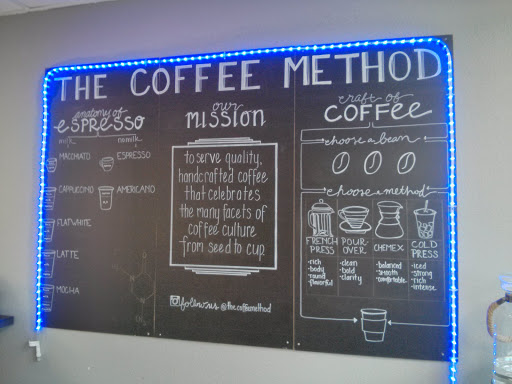 THE COFFEE METHOD
anatomy of
ESPRESSO
milk
no milk
MACCHIATO
ESPRESSO
CAPPUCCINO
AMERICANO
FLATWHITE
LATTE
MOCHA
our
MISSION
to serve quality,
handcrafted coffee
that celebrates
the many facets of
coffee culture
from seed to cup
follow us @thecoffeemethod
craft of
COFFEE
choose a bean
choose a method
FRENCH
PRESS
-rich
-body
-round
-flavorful
POUR-
OVER
-clean
-bold
-clarity
CHEMEX
-balanced
-smooth
-comfortable
COLD
PRESS
-iced
-strong
-rich
-intense